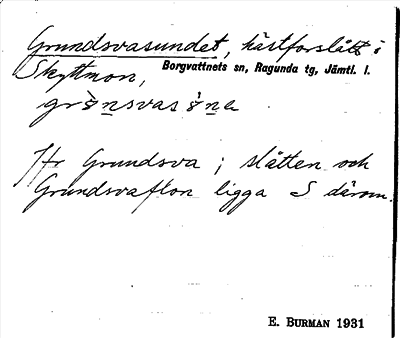 Grundsvasundet, hästforslått i
Skyttmon, Borgvattnets sn, Ragunda tg, Jämtl. l.
Jfr Grundsva ; slåtten och
Grundsvaflon ligga S därom.
E. BURMAN 1931